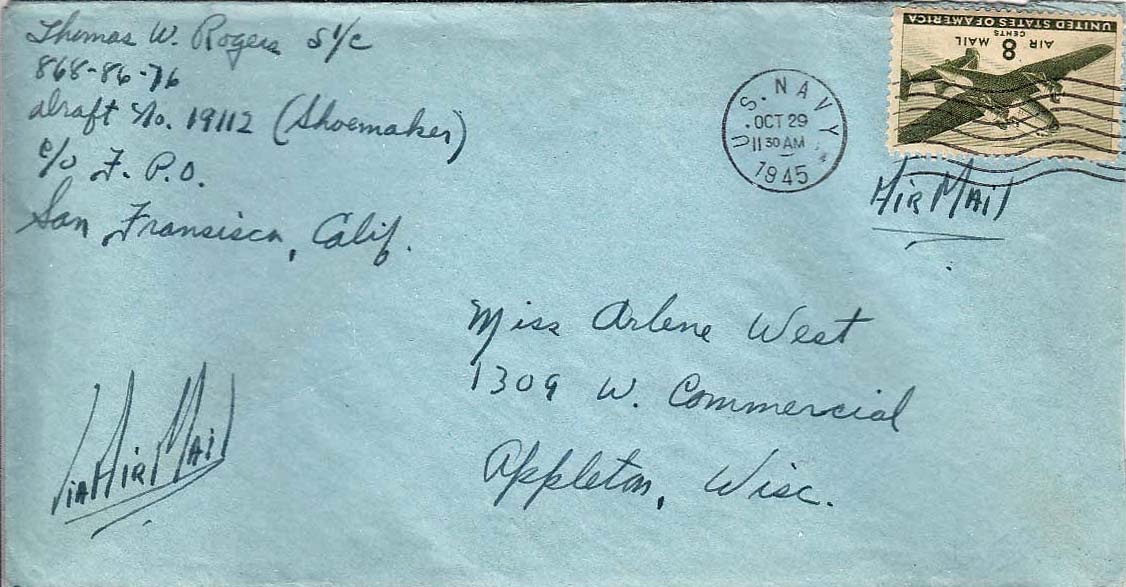 Thomas W. Rogers S 1/c
868-86-76
draft No. 19112 (Shoemaker)
c/o F. P. O.
San Fransisco, Calif.
U.S. NAVY
OCT 29
11 30 AM
1945
UNITED STATES OF AMERICA
AIR MAIL
8
CENTS
Air Mail
Miss Arlene West
1309 W. Commercial
Appleton, Wisc.
Via Air Mail